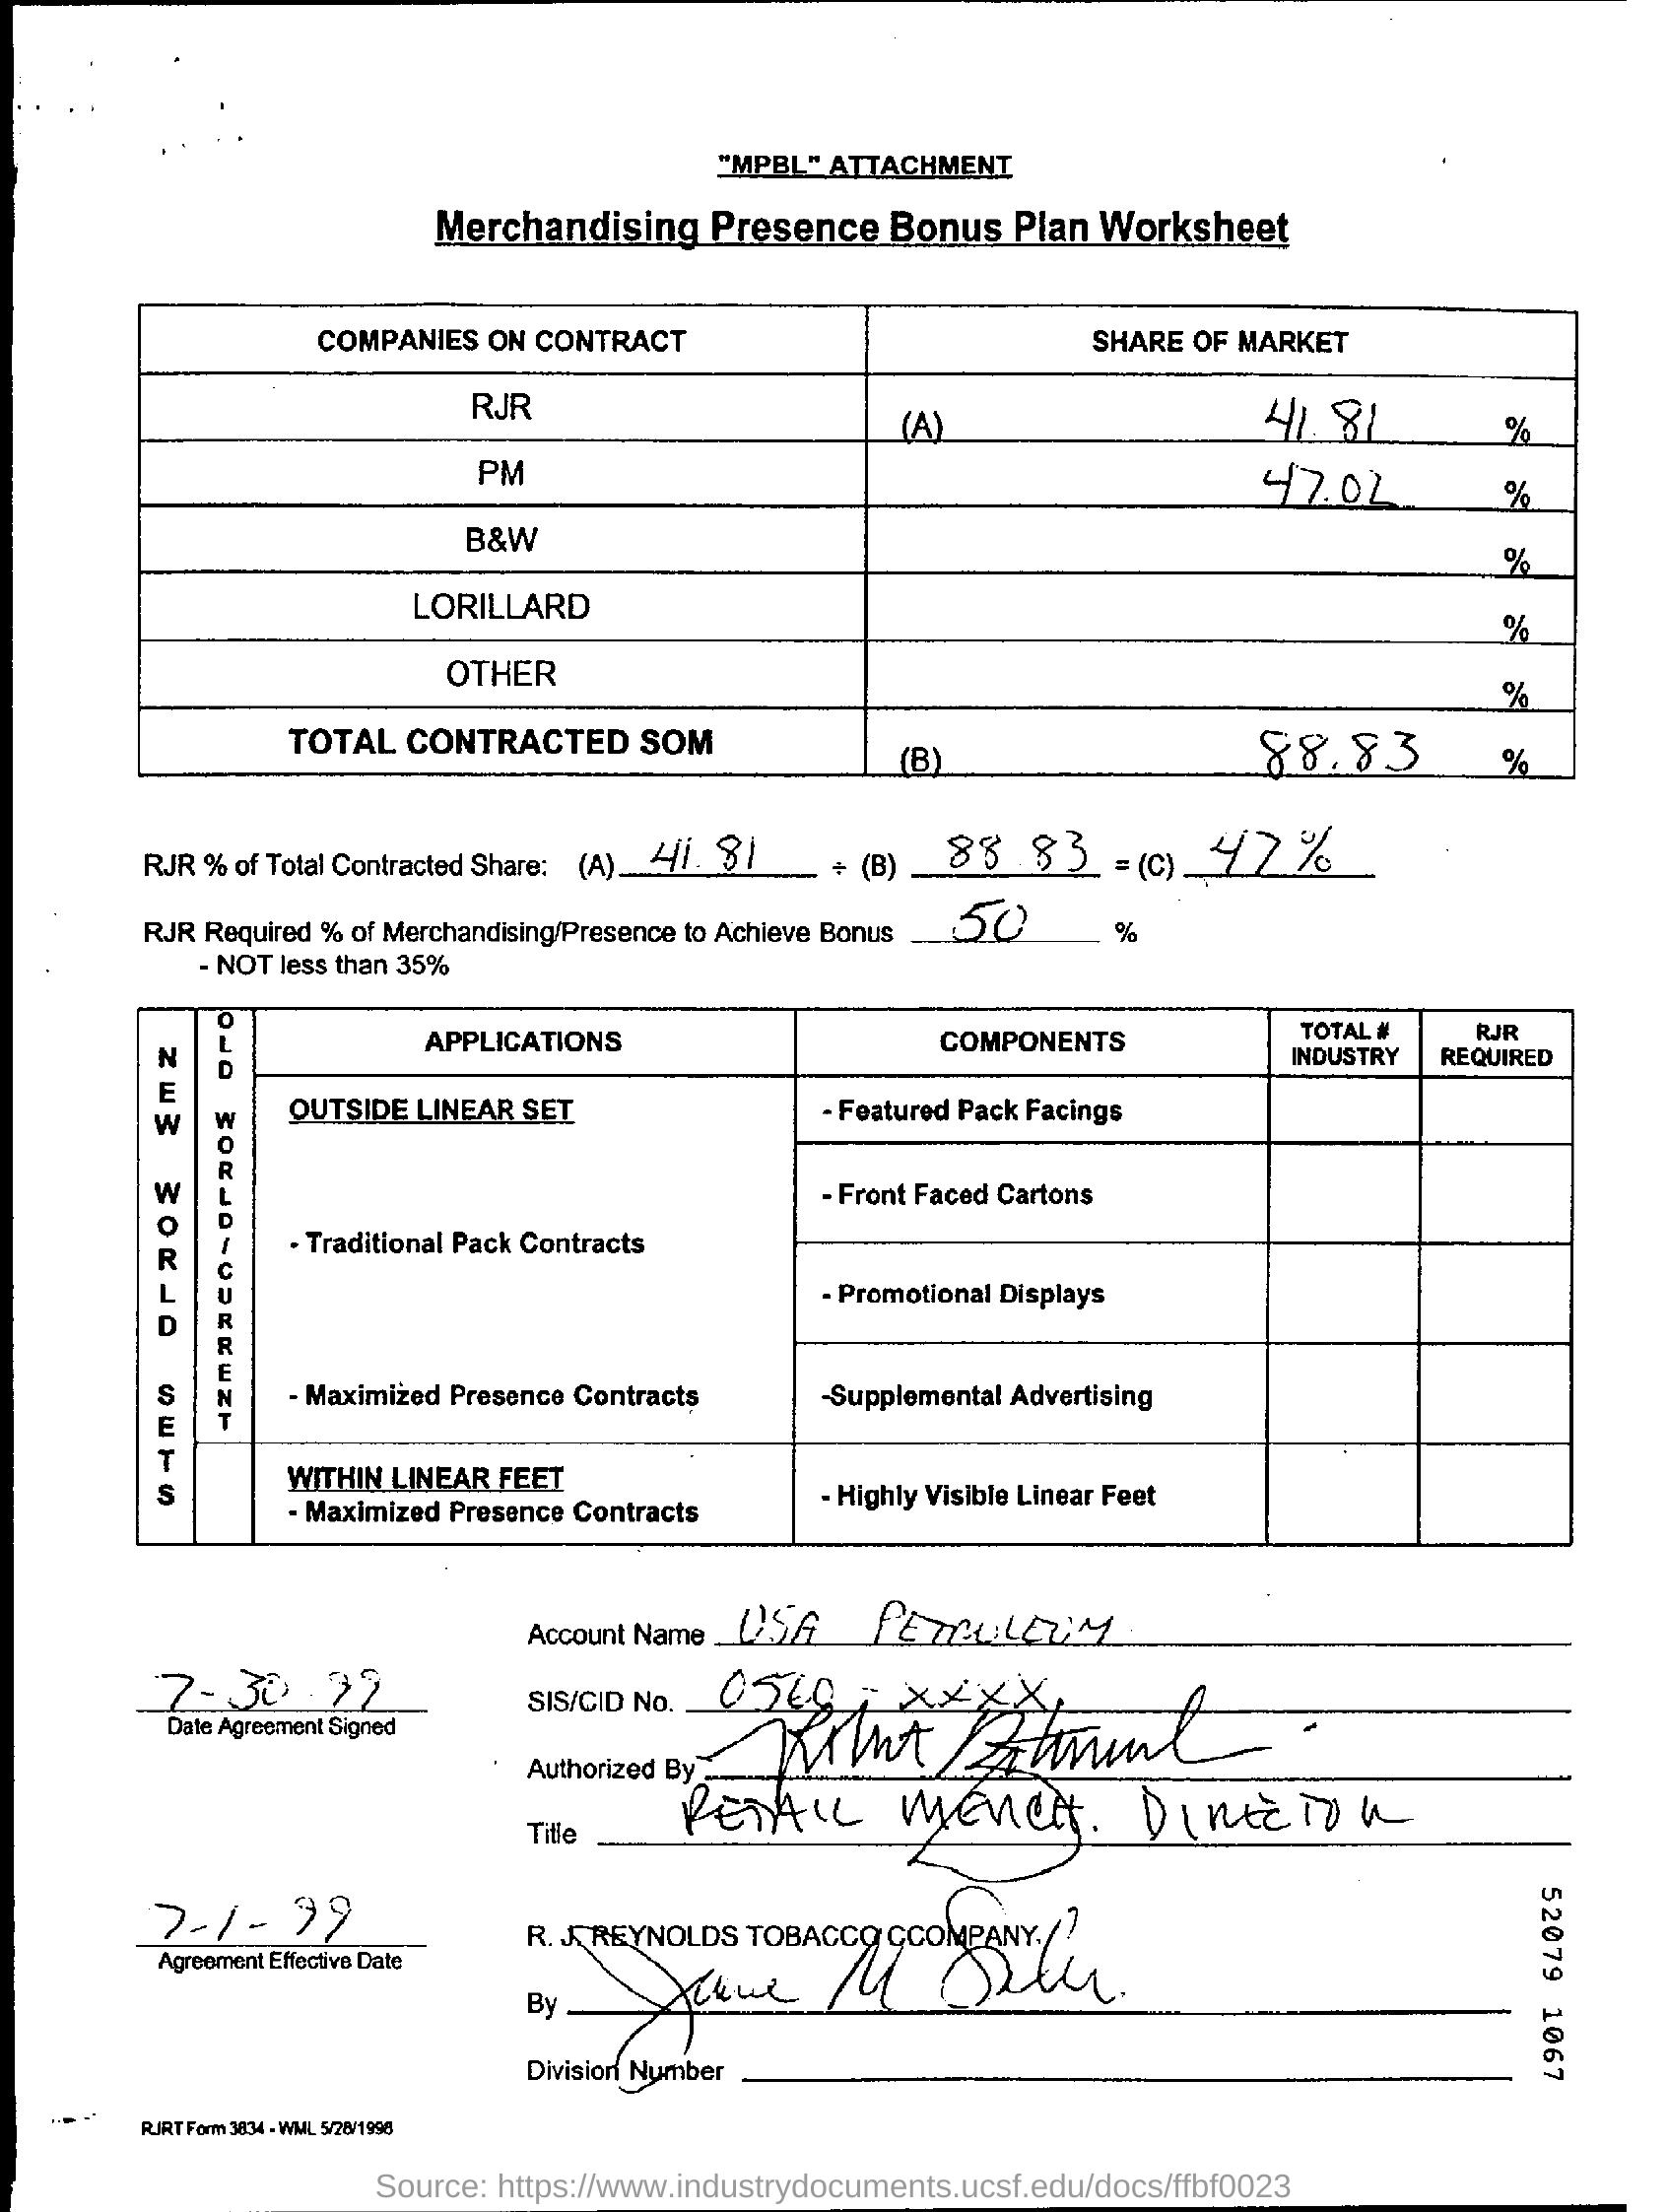 "MPBL" ATTACHMENT
Merchandising Presence Bonus Plan Worksheet
COMPANIES ON CONTRACT SHARE OF MARKET
RJR (A) 41.81 %
PM 47.02 %
B&W %
LORILLARD %
OTHER %
TOTAL CONTRACTED SOM (B) 88.83 %
RJR % of Total Contracted Share: (A) 41.81 ÷ (B) 88.83 = (C) 47%
RJR Required % of Merchandising/Presence to Achieve Bonus 50 %
- NOT less than 35%
NEW WORLD SETS
OLD WORLD/CURRENT
APPLICATIONS COMPONENTS TOTAL # INDUSTRY RJR REQUIRED
OUTSIDE LINEAR SET - Featured Pack Facings
- Front Faced Cartons
- Traditional Pack Contracts
- Promotional Displays
- Maximized Presence Contracts -Supplemental Advertising
WITHIN LINEAR FEET
- Maximized Presence Contracts - Highly Visible Linear Feet
Account Name USA PETROLEUM
7-30-99
Date Agreement Signed
SIS/CID No. 0560-XXXX
Authorized By Robert
Title RETAIL MERCH. DIRECTOR
7-1-99
Agreement Effective Date
R. J. REYNOLDS TOBACCO CCOMPANY.
By M
Division Number
52079 1067
RJRT Form 3834 - WML 5/28/1998
Source: https://www.industrydocuments.ucsf.edu/docs/ffbf0023